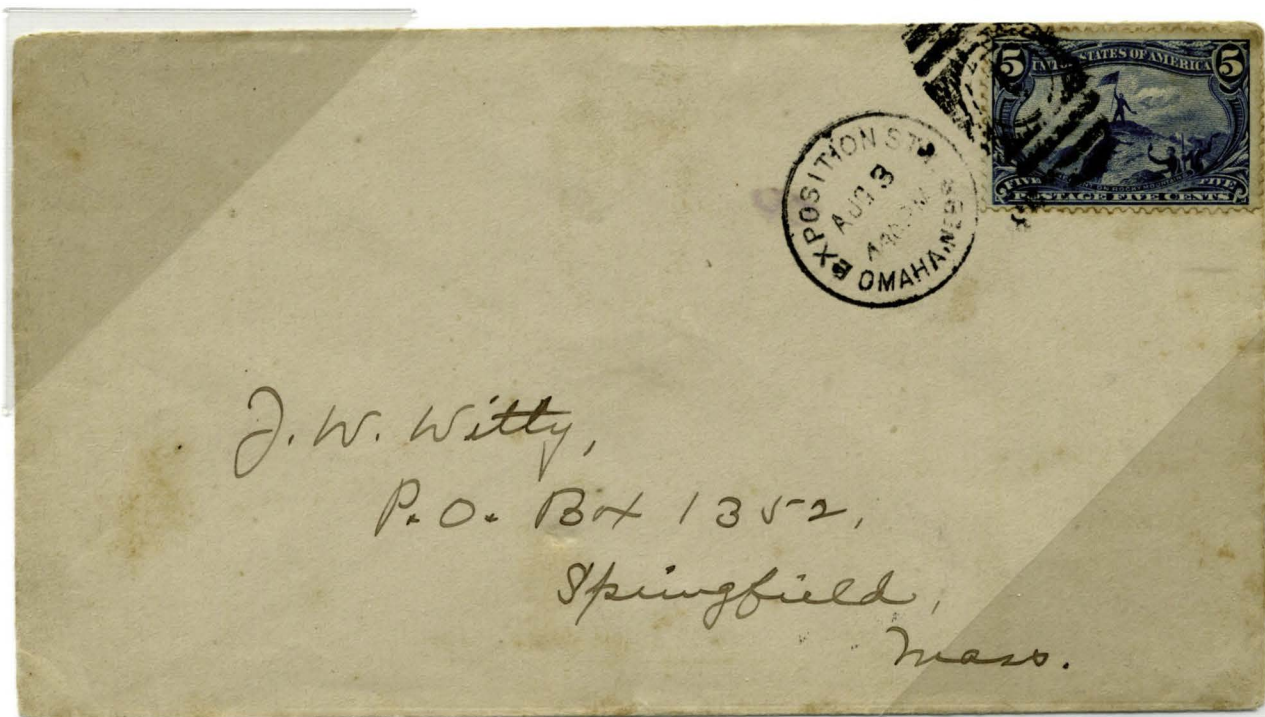 5 UNITED STATES OF AMERICA 5
FIVE FIVE
POSTAGE FIVE CENTS
EXPOSITION STA.
AUG 3
OMAHA, NEBR
J. W. Witty,
P. O. Box 1352,
Springfield,
Mass.